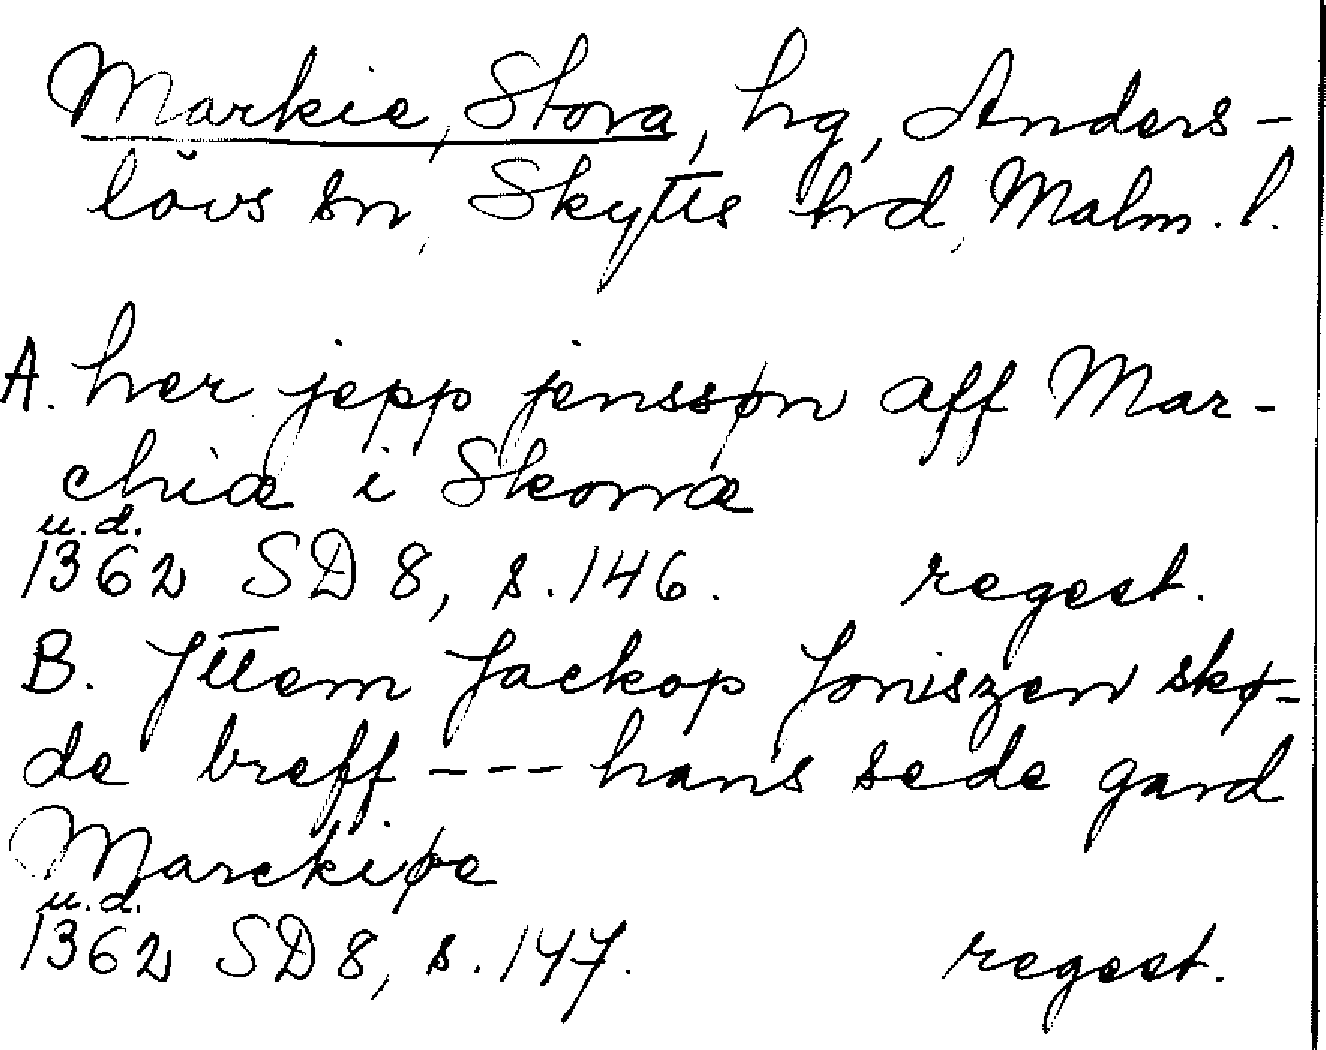 Markie, Stora, hg, Anders-
lövs sn, Skytts hrd, Malm. l.
A. her jepp jenssøn aff Mar-
chiæ i Skonræ
u.d.
1362 SD 8, s. 146. regest.
B. Jttem Jackop Joniszen skø-
de breff --- hans sede gard
Marckiøe
u.d.
1362 SD 8, s. 147. regest.